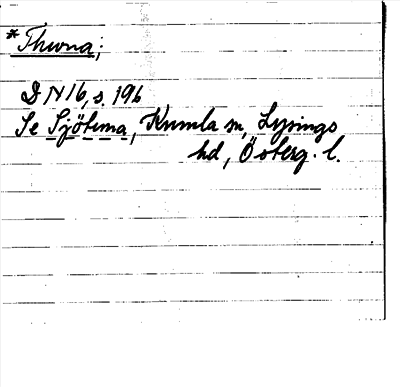 *Thuna;
DN 16, s. 196
Se Sjötuna, Kumla sn, Lysings
hd, Österg. l.